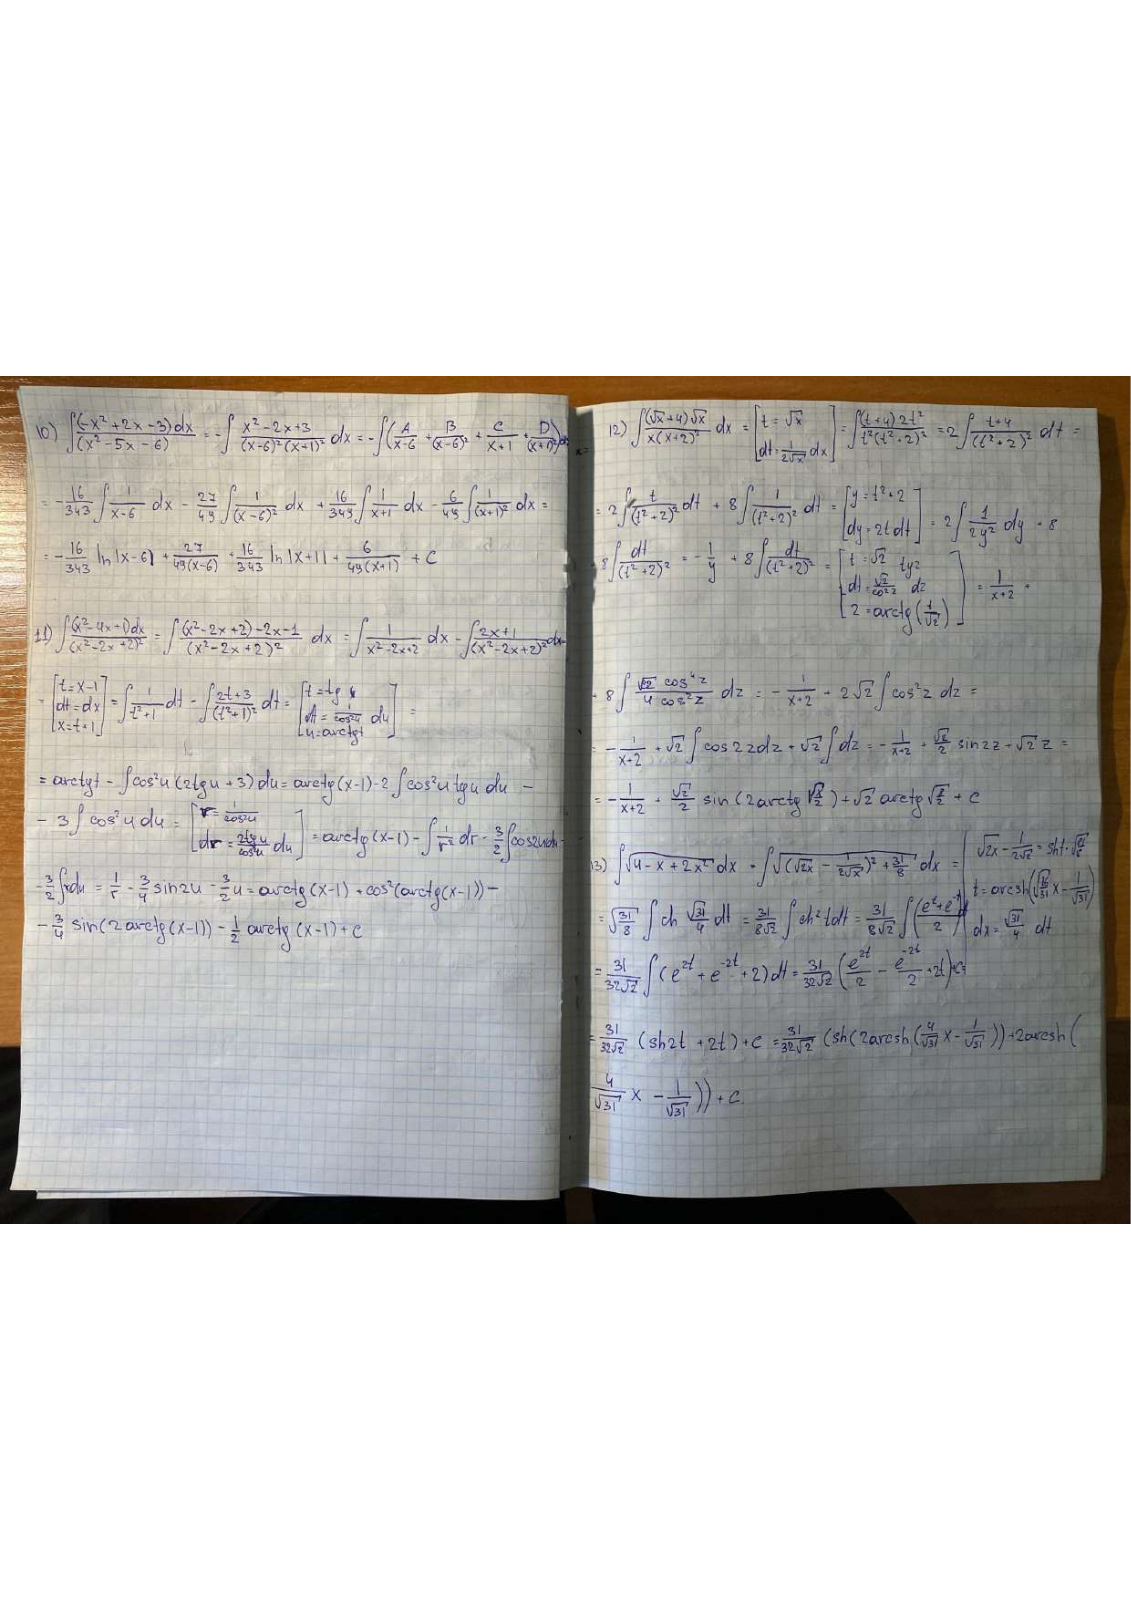 10) ∫ (-x² + 2x - 3)dx / (x² - 5x - 6) = -∫ (x² - 2x + 3) / ((x-6)² (x+1)²) dx = -∫ (A/(x-6) + B/(x-6)² + C/(x+1) + D/(x+1)²) dx =
= -16/343 ∫ 1/(x-6) dx - 27/49 ∫ 1/(x-6)² dx + 16/343 ∫ 1/(x+1) dx - 6/49 ∫ 1/(x+1)² dx =
= -16/343 ln|x-6| + 27/(49(x-6)) + 16/343 ln|x+1| + 6/(49(x+1)) + C
11) ∫ (x²-4x+1)dx / (x²-2x+2)² = ∫ ((x²-2x+2)-2x-1) / (x²-2x+2)² dx = ∫ 1/(x²-2x+2) dx - ∫ (2x+1)/(x²-2x+2)² dx =
= [t=x-1; dt=dx; x=t+1] = ∫ 1/(t²+1) dt - ∫ (2t+3)/(t²+1)² dt = [t=tg u; dt = 1/cos²u du; u=arctgt] =
= arctgt - ∫ cos²u (2tgu + 3) du = arctg(x-1) - 2 ∫ cos²u tgu du -
- 3 ∫ cos²u du = [r = 1/cos²u; dr = 2tgu/cos²u du] = arctg(x-1) - ∫ 1/r² dr - 3/2 ∫ cos2u du -
- 3/2 ∫ du = 1/r - 3/4 sin2u - 3/2 u = arctg(x-1) + cos²(arctg(x-1)) -
- 3/4 sin(2arctg(x-1)) - 1/2 arctg(x-1) + C
12) ∫ (√x+4)√x / (x(x+2)²) dx = [t=√x; dt = 1/(2√x) dx] = ∫ (t+4)2t² / (t²(t²+2)²) = 2 ∫ (t+4)/(t²+2)² dt =
= 2 ∫ t/(t²+2)² dt + 8 ∫ 1/(t²+2)² dt = [y=t²+2; dy=2tdt] = 2 ∫ 1/(2y²) dy + 8
8 ∫ dt/(t²+2)² = -1/y + 8 ∫ dt/(t²+2)² = [t=√2 tgz; dt = √2/cos²z dz; z = arctg(t/√2)] = 1/(x+2) +
+ 8 ∫ √2 cos⁴z / (4 cos²z) dz = -1/(x+2) + 2√2 ∫ cos²z dz =
= -1/(x+2) + √2 ∫ cos2zdz + √2 ∫ dz = -1/(x+2) + √2/2 sin2z + √2 z =
= -1/(x+2) + √2/2 sin(2arctg√(x/2)) + √2 arctg√(x/2) + C
13) ∫ √(4-x+2x²) dx = ∫ √((√2x - 1/(2√2))² + 31/8) dx = [√2x - 1/(2√2) = sht·√(31/8); t = arcsh(√(16/31) x - 1/√31); dx = √31/4 dt]
= √(31/8) ∫ ch √31/4 dt = 31/(8√2) ∫ ch²tdt = 31/(8√2) ∫ ((eᵗ+e⁻ᵗ)/2)
= 31/(32√2) ∫ (e²ᵗ + e⁻²ᵗ + 2) dt = 31/(32√2) (e²ᵗ/2 - e⁻²ᵗ/2 + 2t) + C =
= 31/(32√2) (sh2t + 2t) + C = 31/(32√2) (sh(2arcsh(4/√31 x - 1/√31)) + 2arcsh(
4/√31 x - 1/√31)) + C.